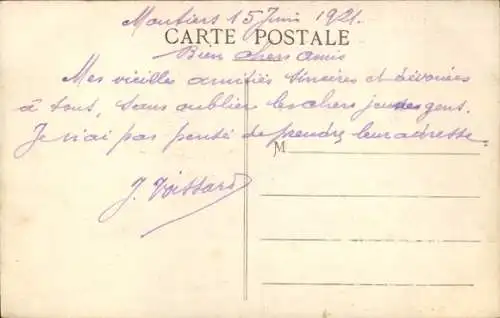 Moutiers 15 Juin 1921.
CARTE POSTALE
Bien chers amis
Mes vieilles amitiés sincères et dévouées
à tout, sans oublier les chers jeunes gens.
Je n'ai pas pensé de prendre leur adresse
M
J. Voissard